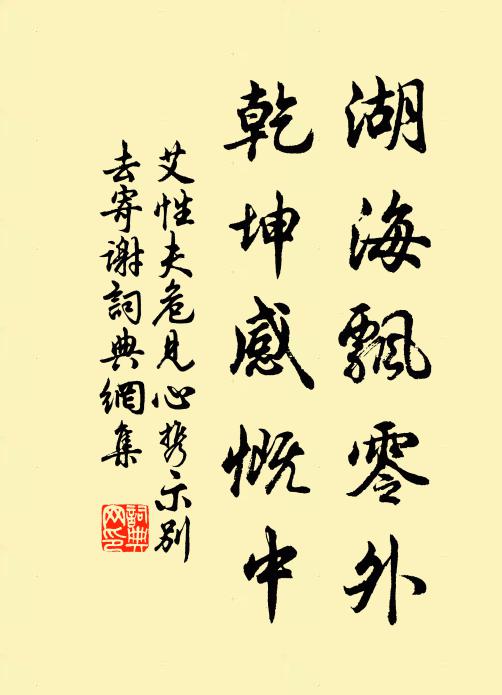 湖海飄零外
乾坤感慨中
艾性夫危見心携示別
去寄謝詞典網集
詞典
网印